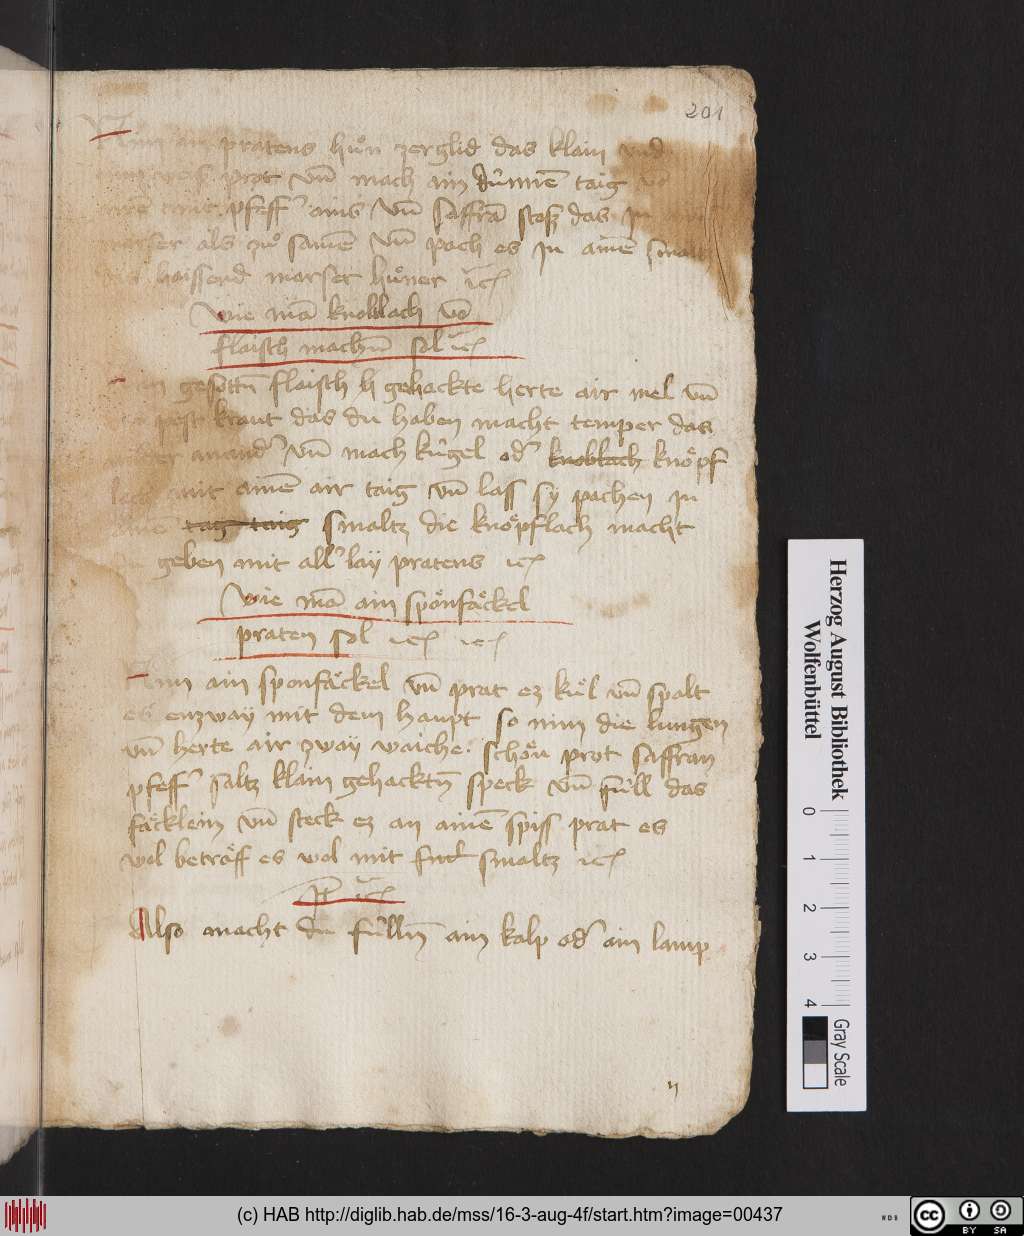 201
pratens hůn zerglid das klain vnd
prot vn̄ mach ain dünnē taig vō
pfeff' ains vn̄ saffrā stosz das in
als zů samē vn̄ pach es in ainē smaltz
haissend morser hůner ic
wie mā knoblach vō
flaisch machn̄ sol ic
gesottn̄ flaisch gehackte herte air mel vn̄
kraut das du haben macht temper das
anand' vn̄ mach kügel od' knoblach knöpf
lach mit ainē air taig vn̄ lass sy pachen in
tag taig smaltz die knöpflach macht
geben mit all' lay pratens ic
wie mā ain spönfäckel
praten sol ic ic
Nim ain sponfäckel vn̄ prat ez kül vn̄ spalt
es enzway mit dem haupt so nim die lungen
vn̄ herte air zway waiche schön prot saffran
pfeff' saltz klain gehacktn̄ speck vn̄ füll das
fäcklein vn̄ steck ez an ainē spiss prat es
wol betröff es wol mit smaltz ic
It ic
Also macht du fülln̄ ain kalp od' ain lamp
Herzog August Bibliothek
Wolfenbüttel
0 1 2 3 4
Gray Scale
(c) HAB http://diglib.hab.de/mss/16-3-aug-4f/start.htm?image=00437
WDB
cc BY SA